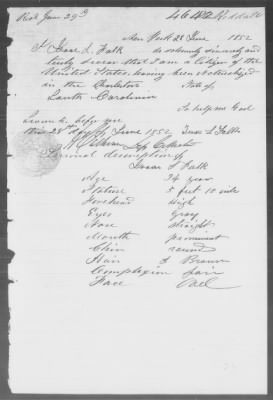 Recd June 29th
New York 28 June 1852
I Isaac L. Falk do solemnly sincerely and
truly swear that I am a Citizen of the
United States, having been Naturalized
in the Charleston State of
South Carolina
So help me God
Sworn to before me
this 28th day of June 1852 Isaac L Falk
Personal description of
Isaac L Falk
Age 24 years
Stature 5 feet 10 inch
Forehead High
Eyes Gray
Nose straight
Mouth prominent
Chin round
Hair Brown
Complexion fair
Face Oval